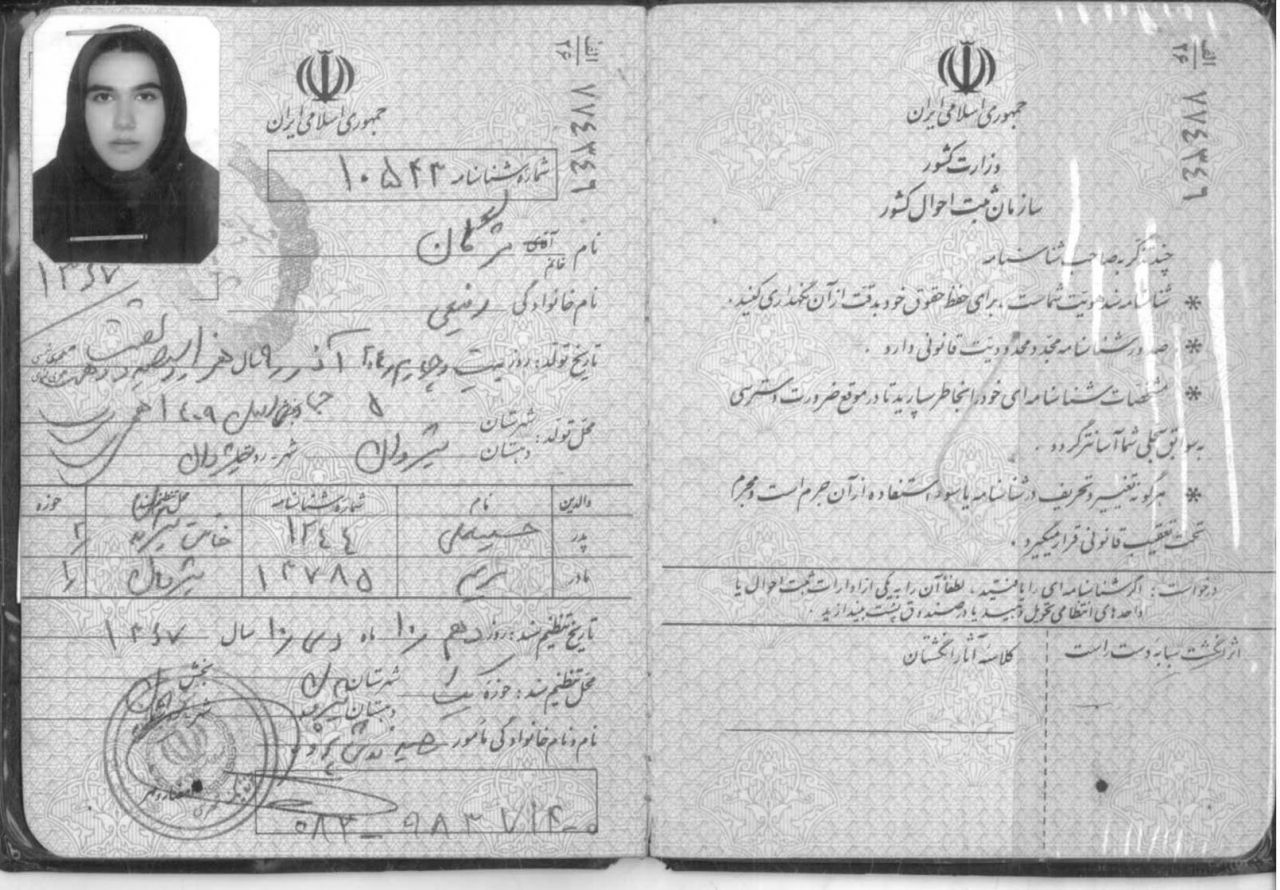 جمهوری اسلامی ایران
وزارت کشور
سازمان ثبت احوال کشور
چند تذکر به صاحب شناسنامه
* شناسنامه سند هویت شماست ، برای حفظ حقوق خود بدقت از آن نگهداری کنید .
* صدور شناسنامه مجدد محدودیت قانونی دارد .
* مشخصات شناسنامه ای خود را بخاطر بسپارید تا در موقع ضرورت دسترسی
به سوابق سجلی شما آسانتر گردد .
* هرگونه تغییر و تحریف در شناسنامه یا سوء استفاده از آن جرم است و مجرم
تحت تعقیب قانونی قرار میگیرد .
درخواست : اگر شناسنامه ای را یافتید ، لطفاً آن را به یکی از ادارات ثبت احوال یا
واحدهای انتظامی تحویل دهید یا در صندوق پست بیندازید .
اثر انگشت سبابه دست راست
کلاسه آثار انگشتان
الف
۲۶
۷۷۴۳۴۹
جمهوری اسلامی ایران
الف
۲۶
۷۷۴۳۴۹
شماره شناسنامه ۱۰۵۴۳
نام آقای خانم مژگان
نام خانوادگی رفیعی
۱۳۶۷
تاریخ تولد : روز بیست و چهارم ۲۴ آذر ۹ سال هزار و سیصد و شصت
۱۴۰۹
محل تولد : شهرستان دهستان شیروان شهر - روستا شیروان
والدین نام شماره شناسنامه محل تنظیم سند حوزه
پدر حسینعلی ۱۲۴۴ ۲
مادر مریم ۱۳۷۸۵ شیروان ۱
تاریخ تنظیم سند : روز دهم ۱۰ ماه دی ۱۰ سال ۱۳۶۷
محل تنظیم سند : حوزه یک شهرستان دهستان بخش
نام و نام خانوادگی مأمور حسین